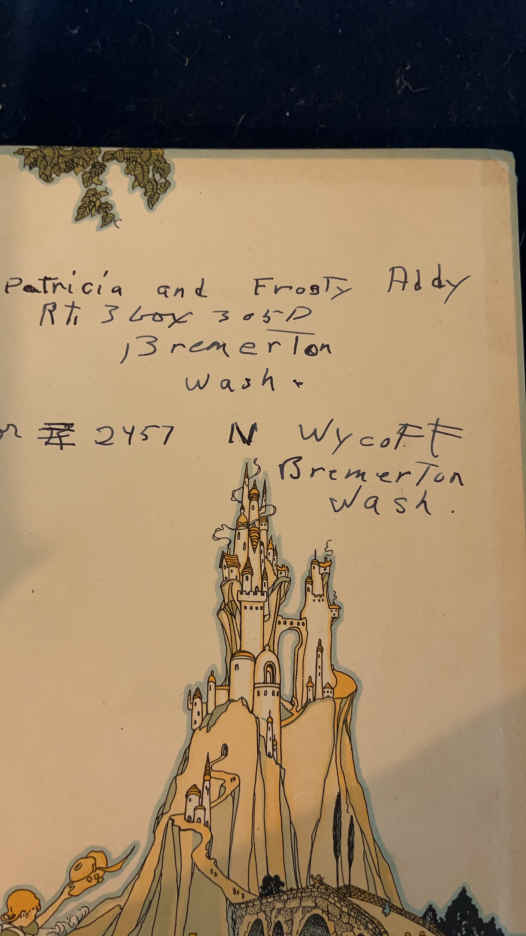 Patricia and Frosty Addy
Rt. 3 box 305D
Bremerton
Wash.
or 2457 N Wycoff
Bremerton
Wash.